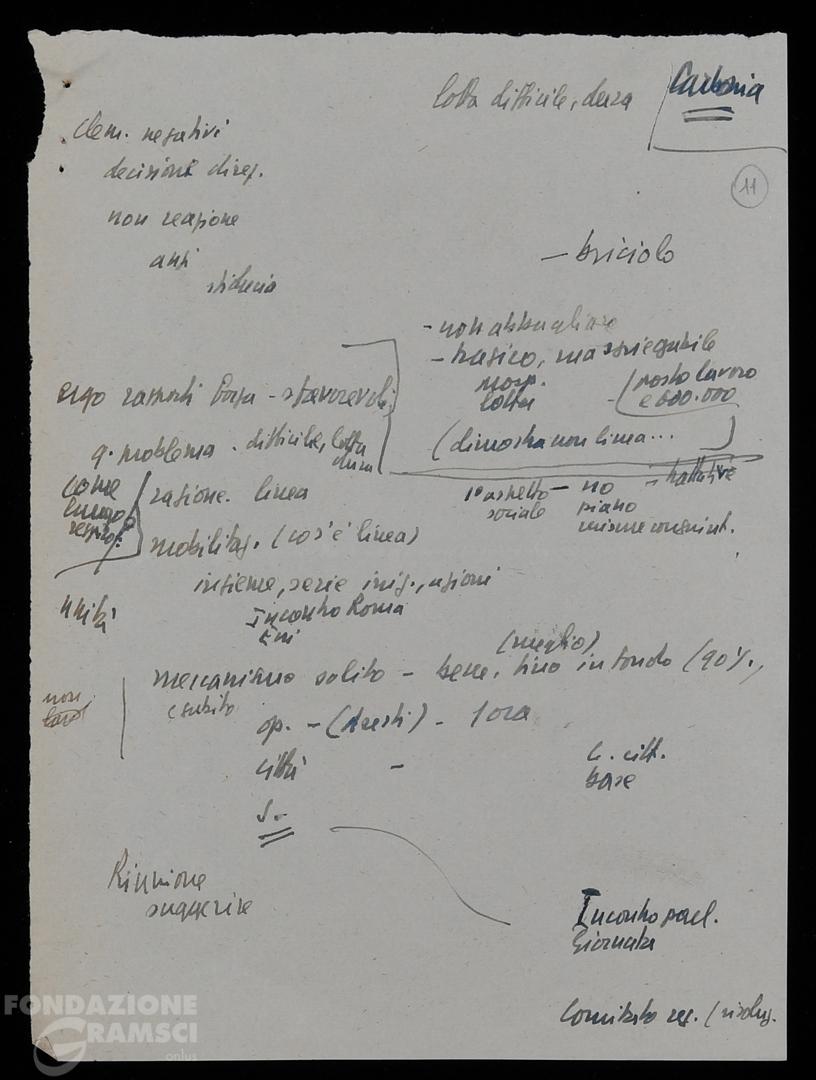 lotta difficile, dura
Carbonia
11
elem. negativi
decisioni direz.
non reazione
anzi
sfiducia
- briciolo
- non abbagliare
- tragico, ma spiegabile
lotta
posto lavoro
e 600.000
ergo rapporti forza - sfavorevoli
(dimostra non linea...
q. problema - difficile, lotta
dura
come
lungo
respiro?
ragione. linea
1° aspetto - no - trattative
sociale piano
mobilitaz. (cos'è linea)
insieme, serie iniz., azioni
Incontro Roma
Eni
unità
(meglio)
meccanismo solito - bene, fino in fondo (90%,
e subito
non
op. - (arresti) - 1 ora
città -
c. citt.
base
S. -
Riunione
suggerire
Incontro parl.
Giornata
Comitato reg. (risoluz.
FONDAZIONE
GRAMSCI
onlus